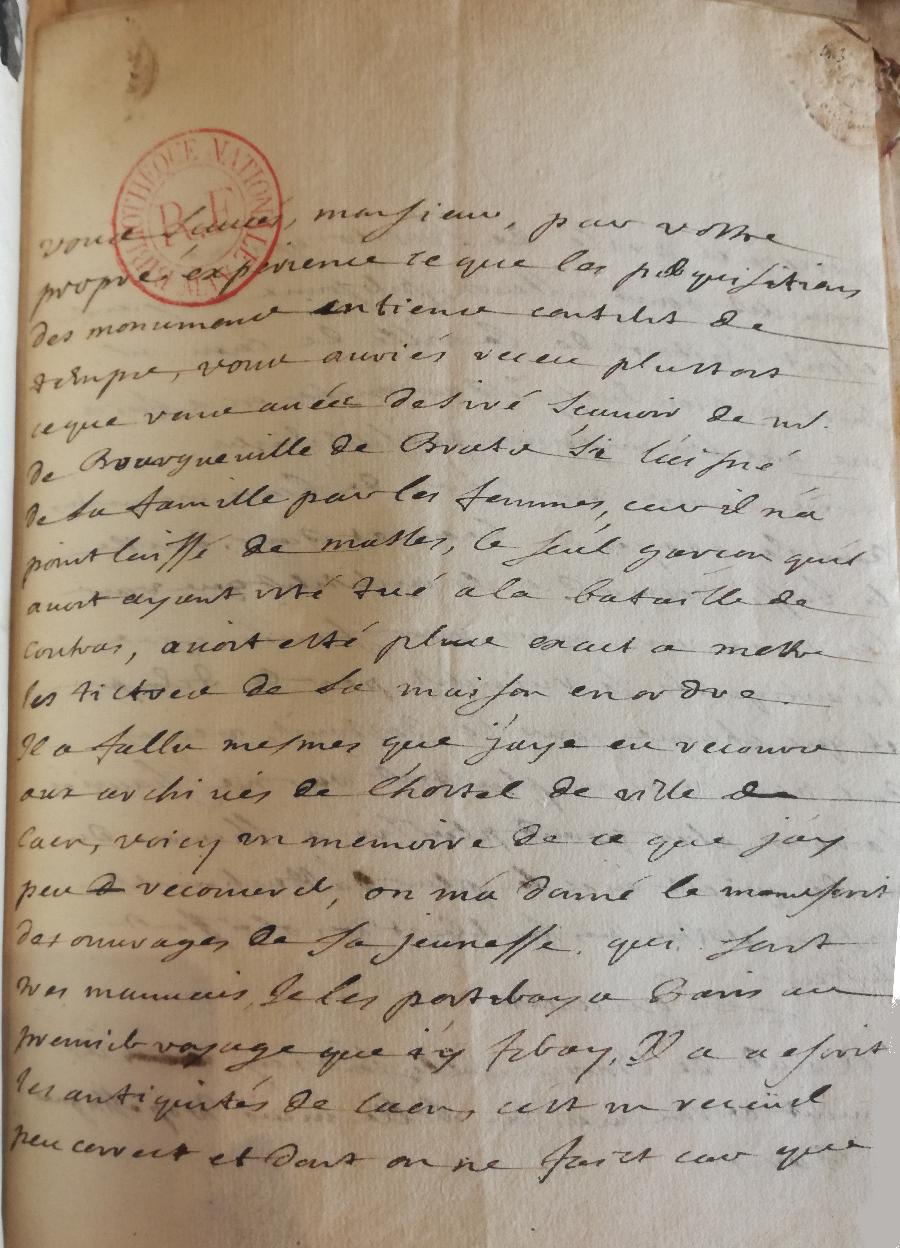 BIBLIOTHEQUE NATIONALE
R.F
vous scaués, monsieur, par vostre
propre expérience ce que les perquisitions
des monumens entiens coutent de
temps, vous auriés receu plustost
ce que vous auées desiré scauoir de mr.
de Bourgueville de Bras si l'aisné
de sa famille par les femmes, car il n'a
point laissé de masles, le seul garcon quil
auoit ayant esté tué a la bataille de
Coutras, auoit esté plus exact a mettre
les tictres de sa maison en ordre
Il a fallu mesmes que j'aye eu recours
aux archiues de l'hostel de ville de
Caen, voicy un memoire de ce que j'ay
peu recouurer, on m'a donné le manuscrit
des ouurages de sa jeunesse qui sont
tres mauuais, Je les porteray a Paris au
premier voyage que j'y feray, Il a escrit
les antiquités de Caen, c'est un recueil
peu correct et dont on ne faict cas que